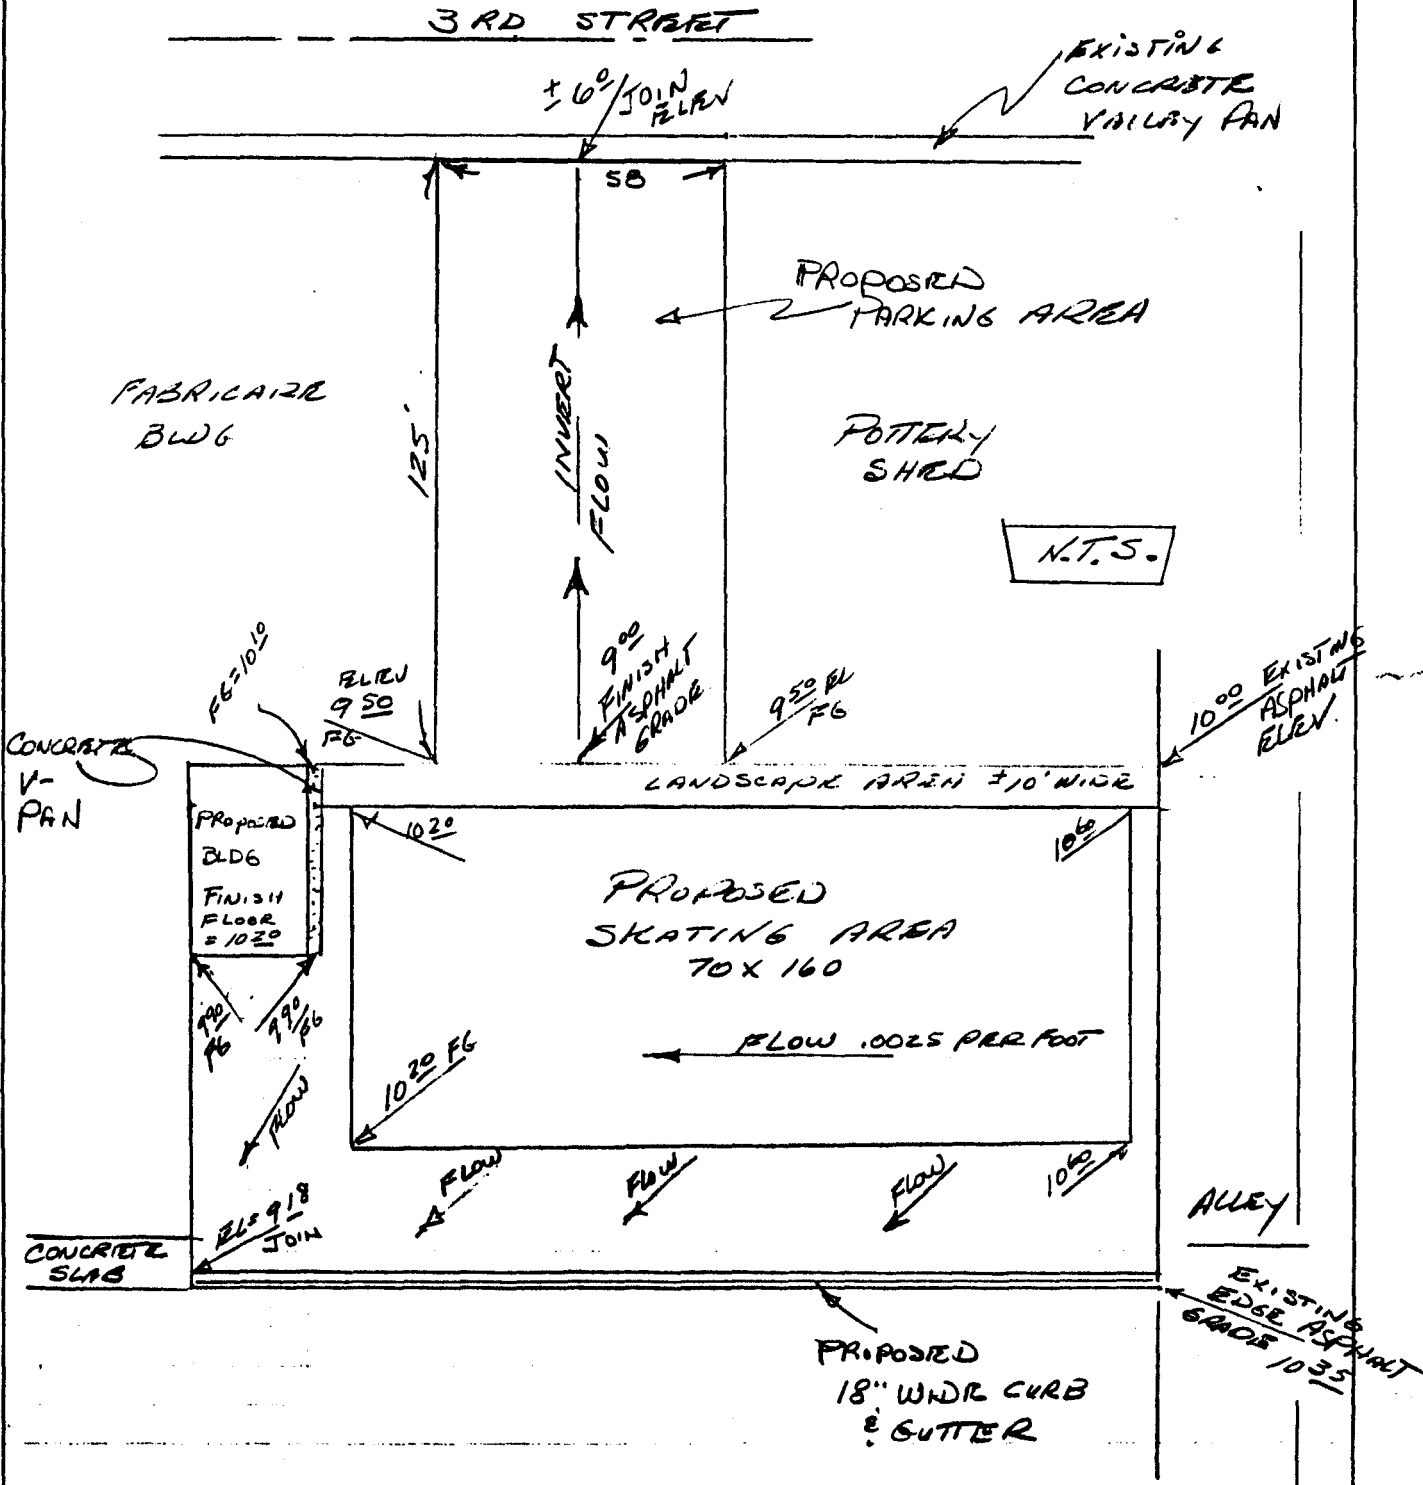 3RD STREET
± 6⁰/JOIN
ELEV
EXISTING
CONCRETE
VALLEY PAN
58
PROPOSED
PARKING AREA
FABRICAIRE
BLDG
125'
INVERT
FLOW
POTTERY
SHED
N.T.S.
FG=10¹⁰
ELEV
9 50
FG
9⁰⁰
FINISH
ASPHALT
GRADE
9⁵⁰ EL
FG
10⁰⁰ EXISTING
ASPHALT
ELEV.
CONCRETE
V-
PAN
LANDSCAPE AREA ±10' WIDE
PROPOSED
BLDG
FINISH
FLOOR
= 10 20
10 20
10⁶⁰
PROPOSED
SKATING AREA
70 X 160
9⁹⁰
FG
9⁹⁰
FG
FLOW .0025 PER FOOT
10 20 FG
FLOW
FLOW
FLOW
FLOW
10⁶⁰
EL= 9 18
JOIN
CONCRETE
SLAB
ALLEY
EXISTING
EDGE ASPHALT
GRADE 10 35
PROPOSED
18" WIDE CURB
& GUTTER